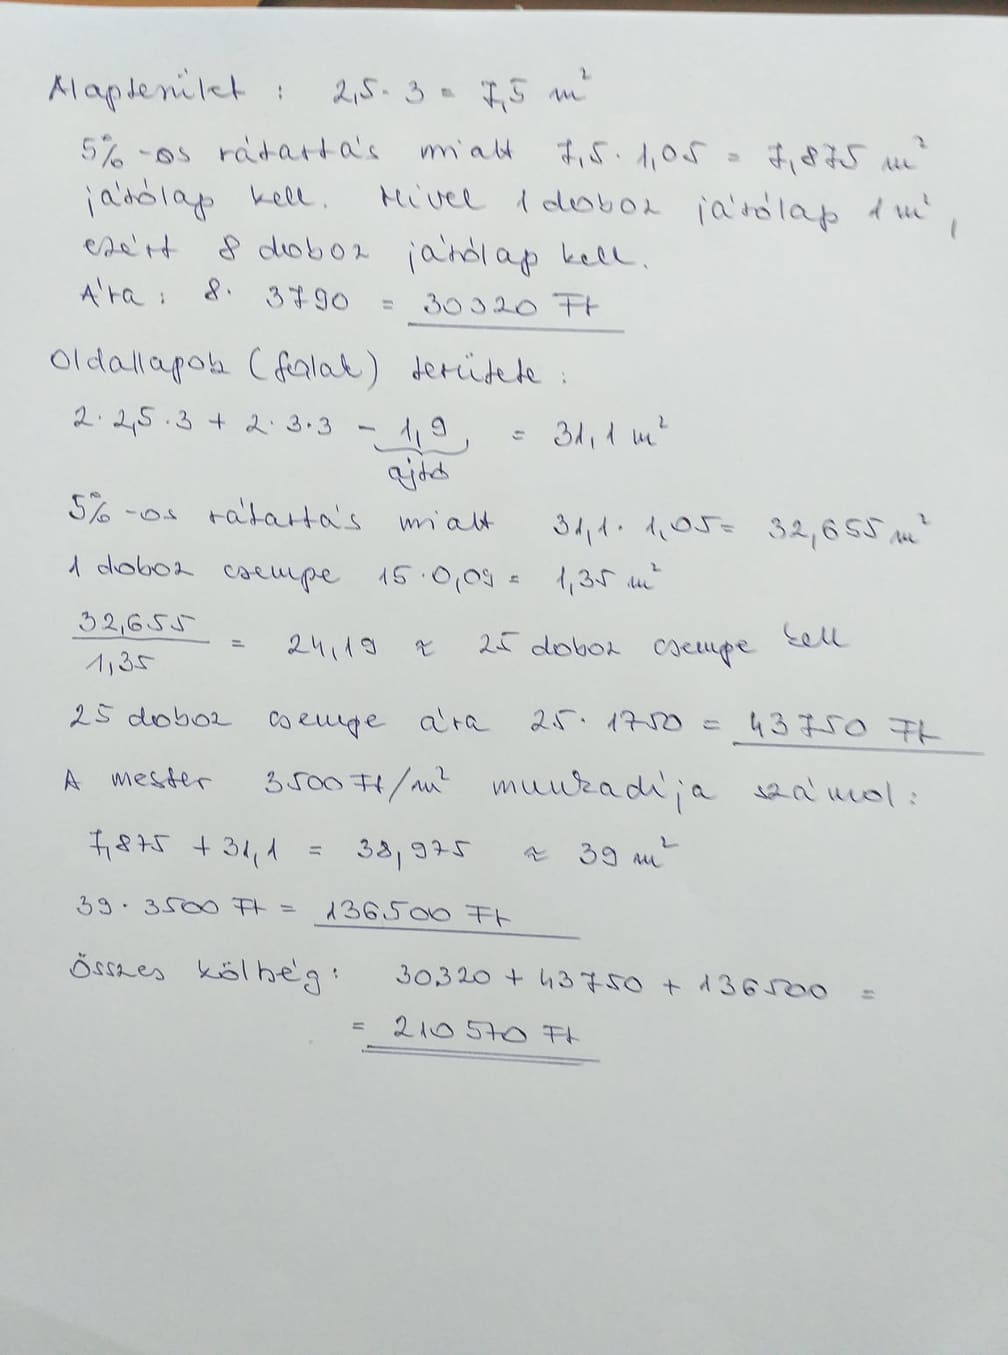 Alapterület : 2,5 · 3 = 7,5 m²
5%-os rátartás miatt 7,5 · 1,05 = 7,875 m²
járólap kell. Mivel 1 doboz járólap 1 m²,
ezért 8 doboz járólap kell.
Ára : 8 · 3790 = 30320 Ft
Oldallapok (falak) területe :
2 · 2,5 · 3 + 2 · 3 · 3 - 1,9 = 31,1 m²
ajtó
5%-os rátartás miatt 31,1 · 1,05 = 32,655 m²
1 doboz csempe 15 · 0,09 = 1,35 m²
32,655 / 1,35 = 24,19 ≈ 25 doboz csempe kell
25 doboz csempe ára 25 · 1750 = 43750 Ft
A mester 3500 Ft/m² munkadíja számol :
7,875 + 31,1 = 38,975 ≈ 39 m²
39 · 3500 Ft = 136500 Ft
Összes költség : 30320 + 43750 + 136500 =
= 210570 Ft